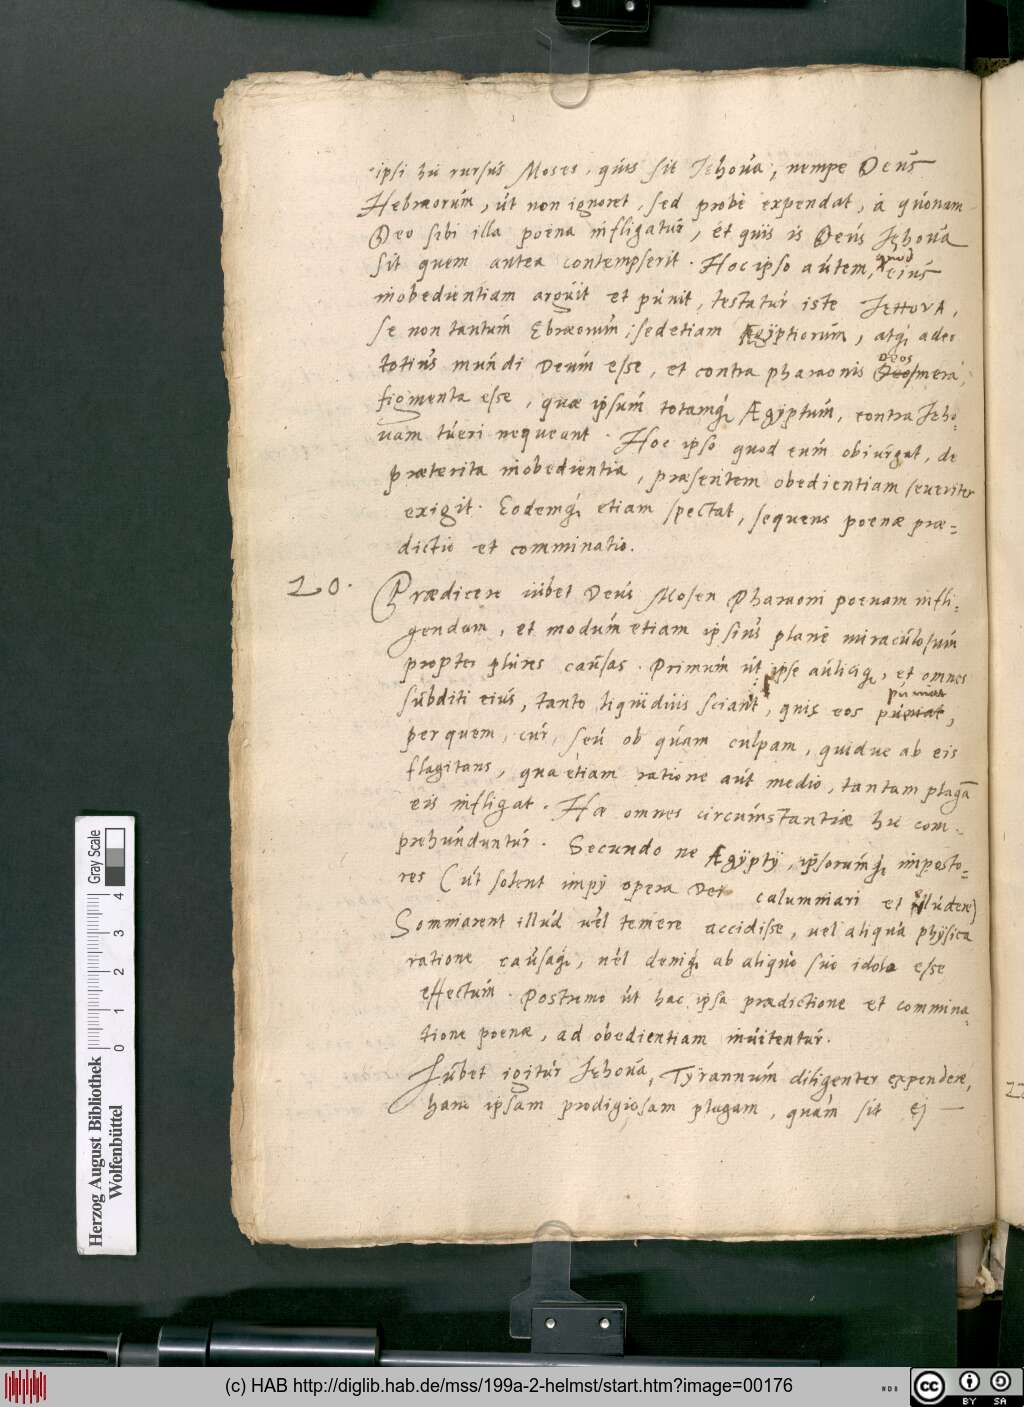 ipsi hic rursus Moses, quis sit Jehova, nempe Deus
Hebræorum, ut non ignoret, sed probè expendat, à quonam
Deo sibi illa poena infligatur, et quis is Deus Jehova
sit quem antea contempserit. Hoc ipso autem, quod ejus
inobedientiam arguit et punit, testatur iste JEHOVA,
se non tantum Ebræorum, sed etiam Ægyptiorum, atq; adeo
totius mundi Deum esse, et contra pharaonis Deos mera
figmenta esse, quæ ipsum totamq; Ægyptum, contra Jeho-
vam tueri nequeant. Hoc ipso quod eum obiurgat, de
præterita inobedientia, præsentem obedientiam severiter
exigit. Eodemq; etiam spectat, sequens poenæ præ=
dictio et comminatio.
20. Prædicere iubet Deus Mosen Pharaoni poenam infli-
gendam, et modum etiam ipsius planè miraculosum
propter plures causas. Primum ut ipse auliciq; et omnes
subditi eius, tanto liquidius sciant, quis eos puniat,
per quem, cur, seu ob quam culpam, quidve ab eis
flagitans, qua etiam ratione aut medio, tantam plagā
eis infligat. Hæ omnes circumstantiæ hic com-
prehunduntur. Secundo ne Ægyptij, ipsorumq; imposto=
res (ut solent impij opera Dei calumniari et illudere)
Somniarent illud vel temere accidisse, vel aliqua physica
ratione causaq;, vel deniq; ab aliquo suo idolo esse
effectum. Postremo ut hac ipsa prædictione et commina-
tione poenæ, ad obedientiam invitentur.
Jubet igitur Jehova, Tyrannum diligenter expendere,
hanc ipsam prodigiosam plagam, quàm sit ej
Herzog August Bibliothek
Wolfenbüttel
0 1 2 3 4
Gray Scale
(c) HAB http://diglib.hab.de/mss/199a-2-helmst/start.htm?image=00176
cc BY SA